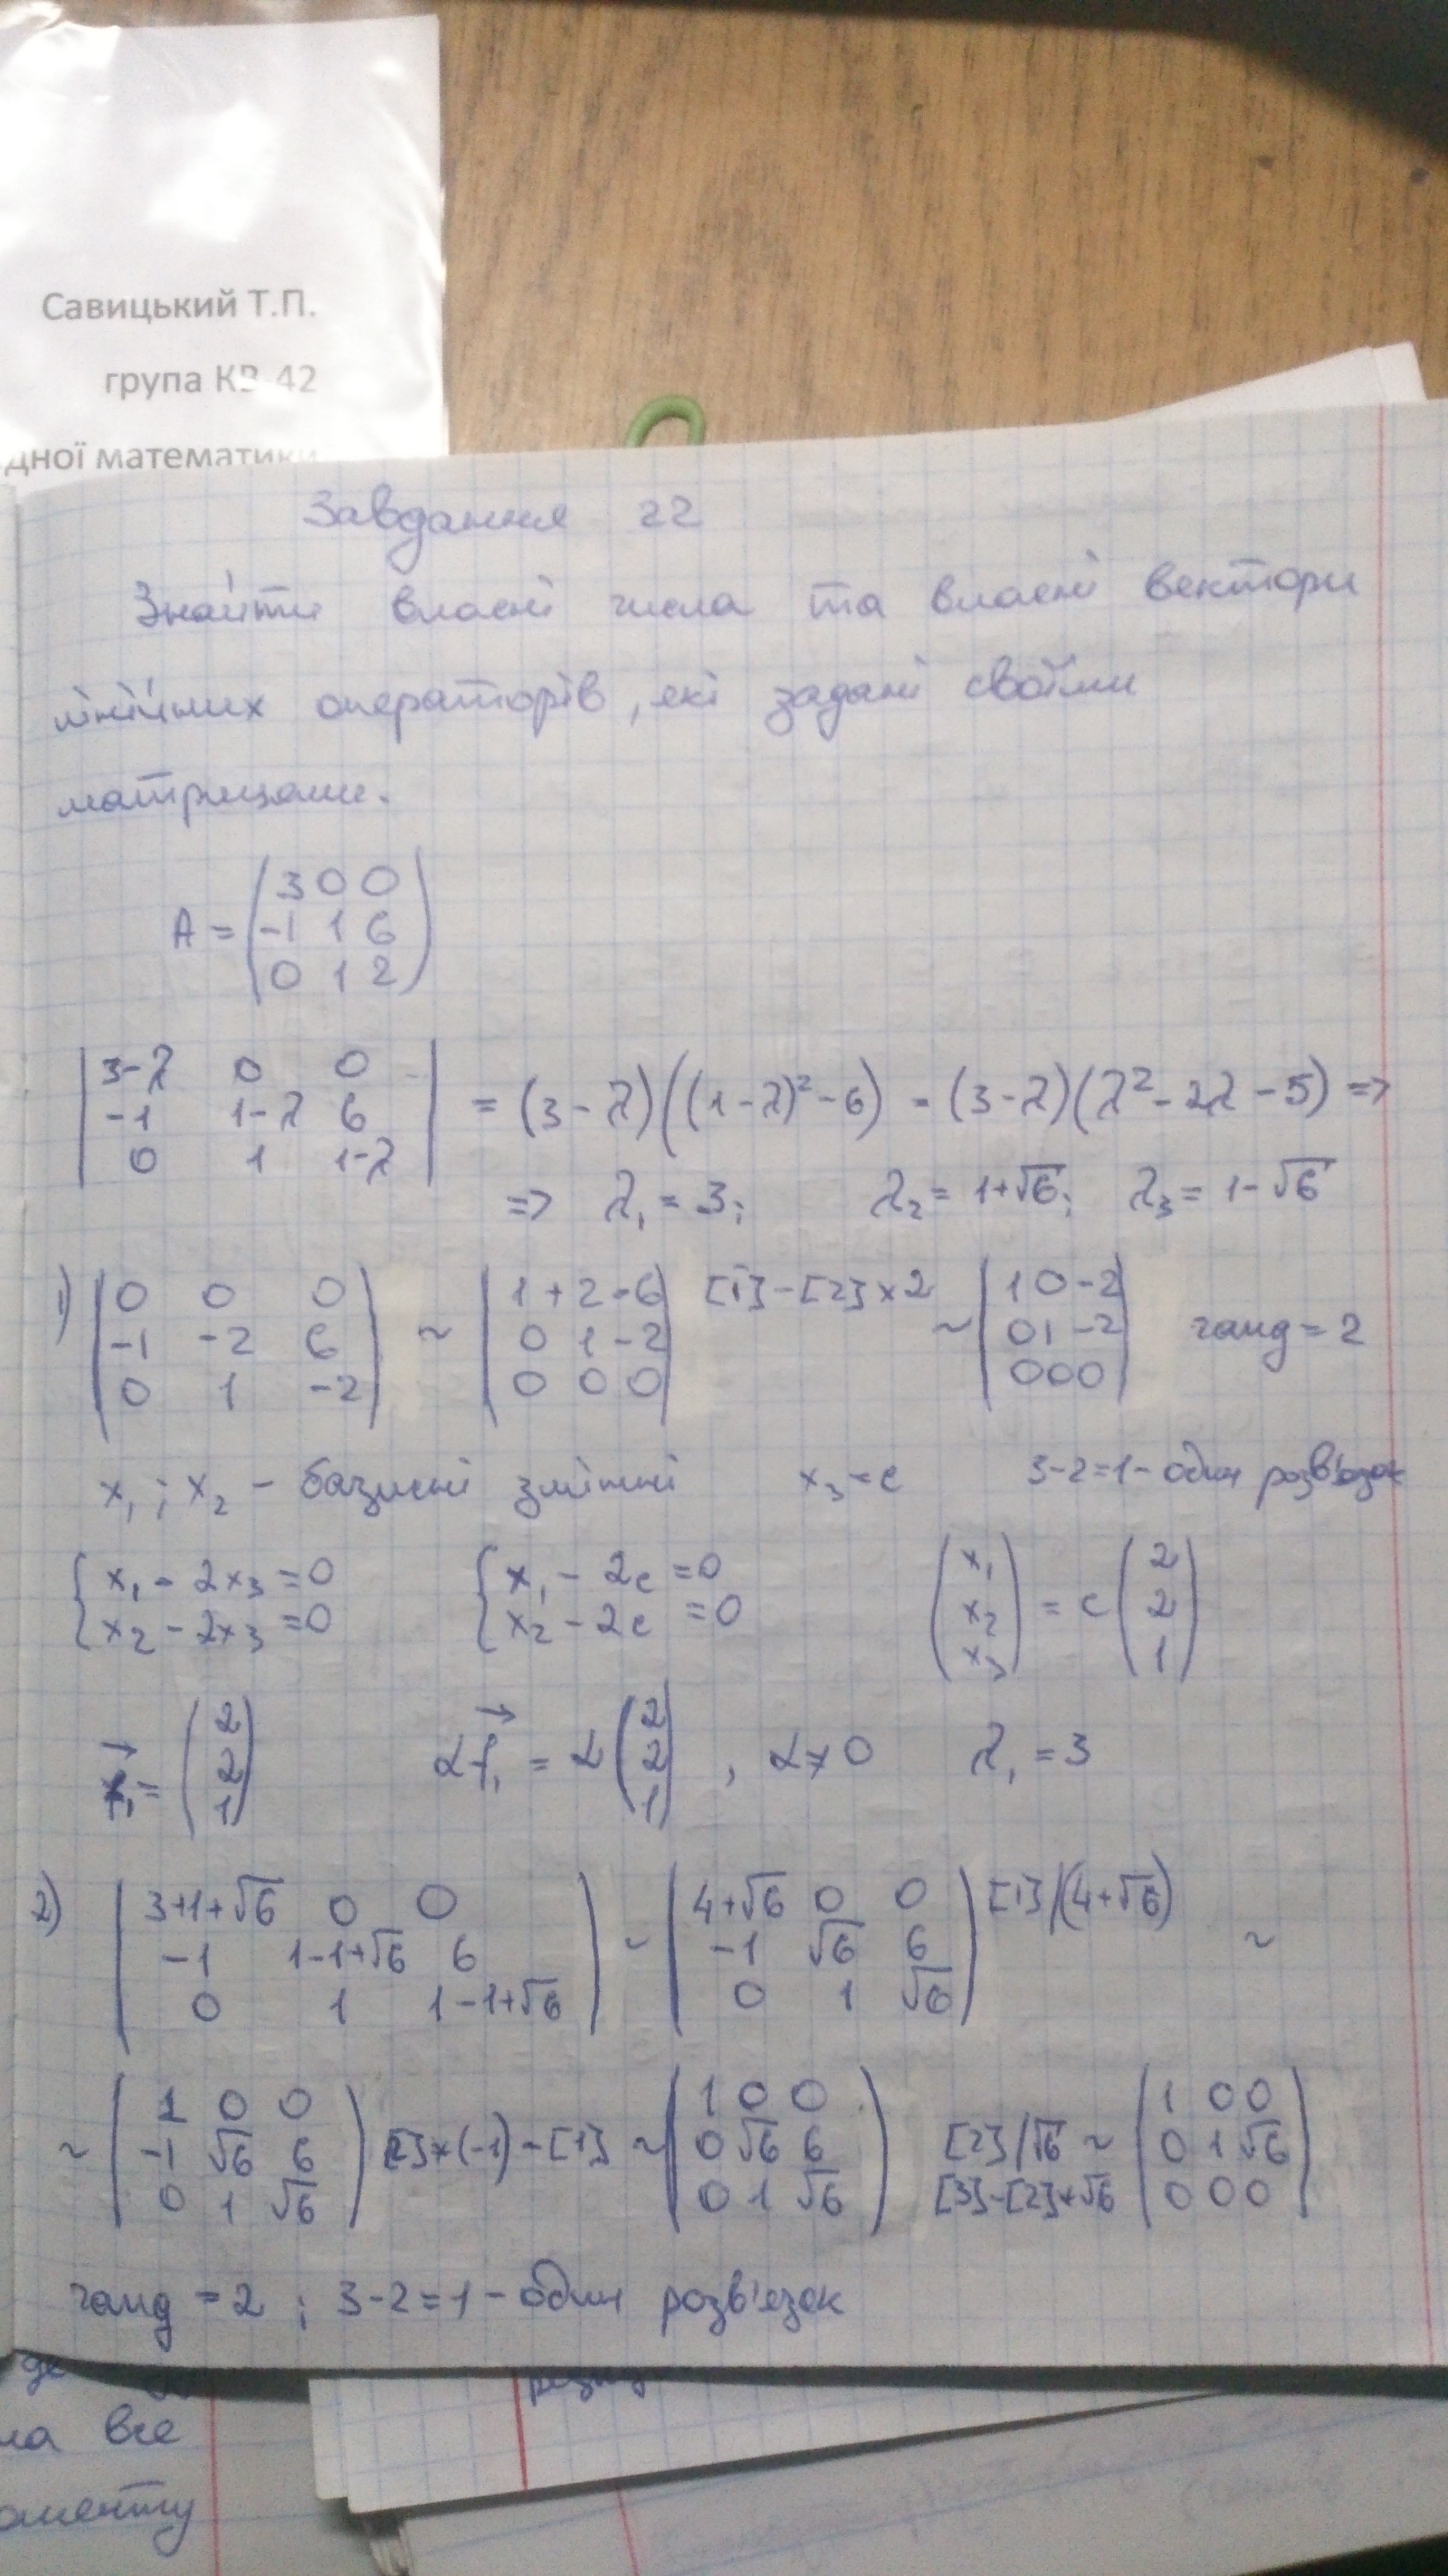 Савицький Т.П.
група КВ-42
дної математики
Завдання 22
Знайти власні числа та власні вектори
лінійних операторів, які задані своїми
матрицами.
A = (3 0 0
-1 1 6
0 1 2)
|3-λ 0 0
-1 1-λ 6
0 1 1-λ| = (3-λ)((1-λ)²-6) = (3-λ)(λ²-2λ-5) =>
=> λ₁ = 3; λ₂ = 1+√6; λ₃ = 1-√6
1) |0 0 0
-1 -2 6
0 1 -2) ~ |1 +2 -6
0 1 -2
0 0 0| [1]-[2]×2 ~ |1 0 -2
0 1 -2
0 0 0| rang = 2
x₁; x₂ - базисні змінні x₃ = c 3-2=1 - один розв'язок
{x₁ - 2x₃ = 0 {x₁ - 2c = 0
x₂ - 2x₃ = 0 x₂ - 2c = 0
(x₁
x₂
x₃) = c (2
2
1)
f₁ = (2
2
1) αf₁ = α(2
2
1), α≠0 λ₁ = 3
2) |3+1+√6 0 0
-1 1-1+√6 6
0 1 1-1+√6) ~ |4+√6 0 0
-1 √6 6
0 1 √6) [1]/(4+√6) ~
~ (1 0 0
-1 √6 6
0 1 √6) [2]*(-1)-[1] ~ (1 0 0
0 √6 6
0 1 √6) [2]/√6
[3]-[2]*√6 ~ (1 0 0
0 1 √6
0 0 0)
rang = 2; 3-2=1 - один розв'язок
ла все
оменту